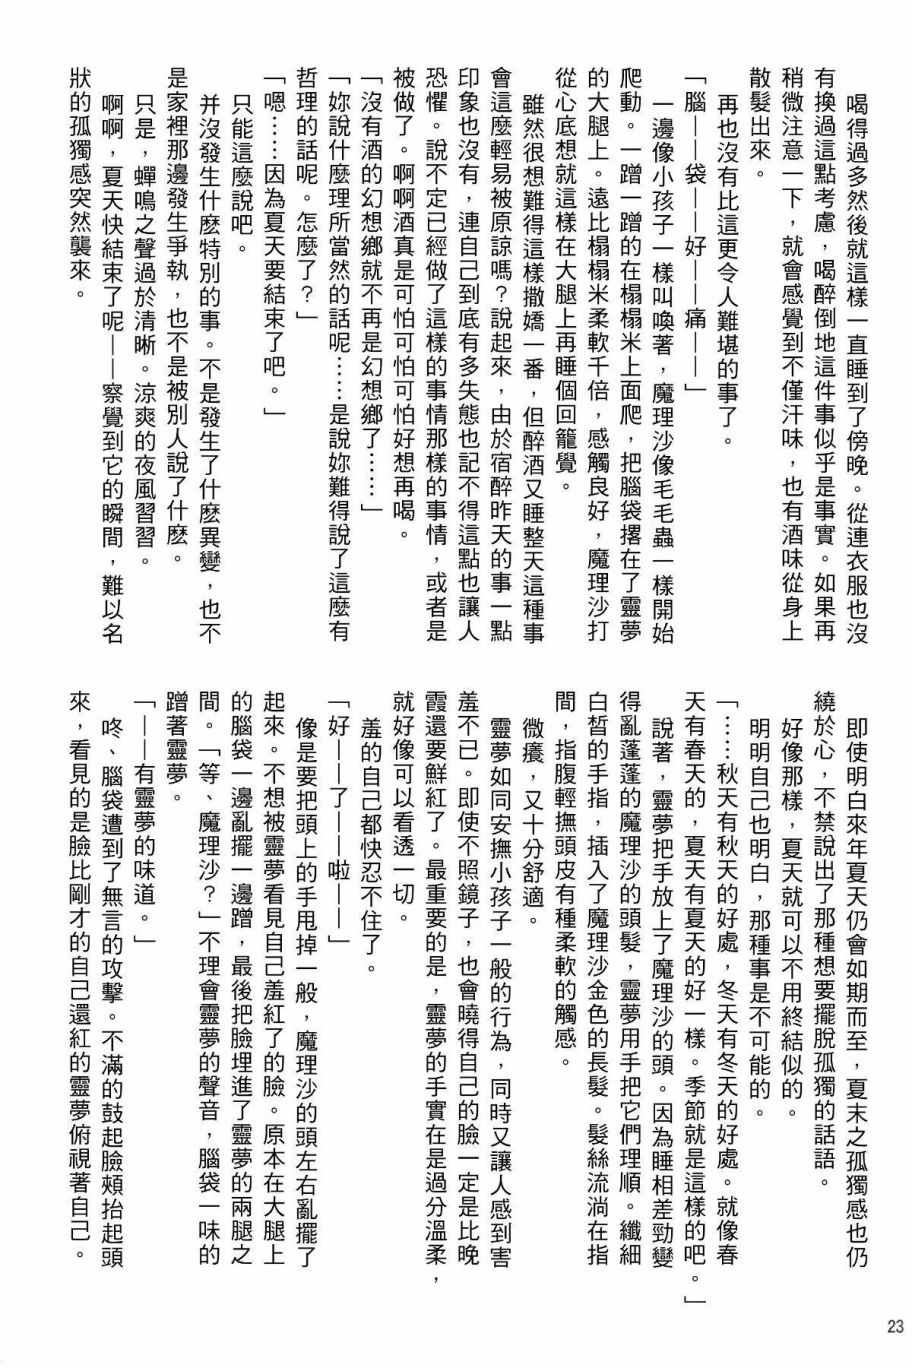 喝得過多然後就這樣一直睡到了傍晚。從連衣服也沒
有換過這點考慮，喝醉倒地這件事似乎是事實。如果再
稍微注意一下，就會感覺到不僅汗味，也有酒味從身上
散髮出來。
再也沒有比這更令人難堪的事了。
「腦——袋——好——痛——」
一邊像小孩子一樣叫喚著，魔理沙像毛毛蟲一樣開始
爬動。一蹭一蹭的在榻榻米上面爬，把腦袋撂在了靈夢
的大腿上。遠比榻榻米柔軟千倍，感觸良好，魔理沙打
從心底想就這樣在大腿上再睡個回籠覺。
雖然很想難得這樣撒嬌一番，但醉酒又睡整天這種事
會這麼輕易被原諒嗎？說起來，由於宿醉昨天的事一點
印象也沒有，連自己到底有多失態也記不得這點也讓人
恐懼。說不定已經做了這樣的事情那樣的事情，或者是
被做了。啊啊酒真是可怕可怕可怕好想再喝。
「沒有酒的幻想鄉就不再是幻想鄉了……」
「妳說什麼理所當然的話呢……是說妳難得說了這麼有
哲理的話呢。怎麼了？」
「嗯……因為夏天要結束了吧。」
只能這麼說吧。
並沒發生什麽特別的事。不是發生了什麽異變，也不
是家裡那邊發生爭執，也不是被別人說了什麽。
只是，蟬鳴之聲過於清晰。涼爽的夜風習習。
啊啊，夏天快結束了呢——察覺到它的瞬間，難以名
狀的孤獨感突然襲來。
即使明白來年夏天仍會如期而至，夏末之孤獨感也仍
繞於心，不禁說出了那種想要擺脫孤獨的話語。
好像那樣，夏天就可以不用終結似的。
明明自己也明白，那種事是不可能的。
「……秋天有秋天的好處，冬天有冬天的好處。就像春
天有春天的，夏天有夏天的好一樣。季節就是這樣的吧。」
說著，靈夢把手放上了魔理沙的頭。因為睡相差勁變
得亂蓬蓬的魔理沙的頭髮，靈夢用手把它們理順。纖細
白皙的手指，插入了魔理沙金色的長髮。髮絲流淌在指
間，指腹輕撫頭皮有種柔軟的觸感。
微癢，又十分舒適。
靈夢如同安撫小孩子一般的行為，同時又讓人感到害
羞不已。即使不照鏡子，也會曉得自己的臉一定是比晚
霞還要鮮紅了。最重要的是，靈夢的手實在是過分溫柔，
就好像可以看透一切。
羞的自己都快忍不住了。
「好——了——啦——」
像是要把頭上的手甩掉一般，魔理沙的頭左右亂擺了
起來。不想被靈夢看見自己羞紅了的臉。原本在大腿上
的腦袋一邊亂擺一邊蹭，最後把臉埋進了靈夢的兩腿之
間。「等、魔理沙？」不理會靈夢的聲音，腦袋一味的
蹭著靈夢。
「——有靈夢的味道。」
咚、腦袋遭到了無言的攻擊。不滿的鼓起臉頰抬起頭
來，看見的是臉比剛才的自己還紅的靈夢俯視著自己。
23